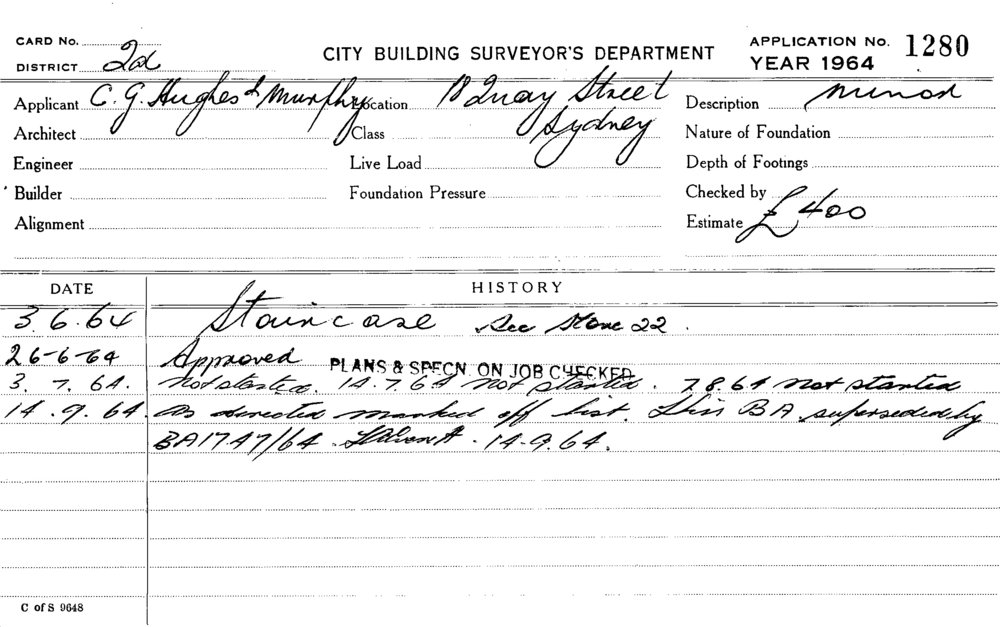 CARD No. CITY BUILDING SURVEYOR'S DEPARTMENT APPLICATION No. 1280
DISTRICT 2d YEAR 1964
Applicant C. G. Hughes & Murphy Location 18 Quay Street Description minor
Architect Class Sydney Nature of Foundation
Engineer Live Load Depth of Footings
Builder Foundation Pressure Checked by
Alignment Estimate £400
DATE HISTORY
3.6.64 Staircase See Stone 22.
26-6-64 Approved PLANS & SPECN. ON JOB CHECKED
3.7.64. Not started. 14.7.64 Not started. 7.8.64 Not started
14.9.64. As directed marked off list. This BA superseded by
BA1747/64. 14.9.64.
C of S 9648